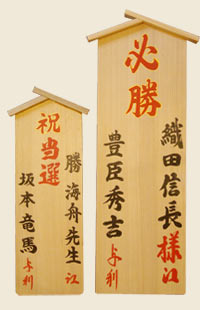 必勝
織田信長様江
豊臣秀吉与利
祝当選
勝海舟先生江
坂本竜馬与利